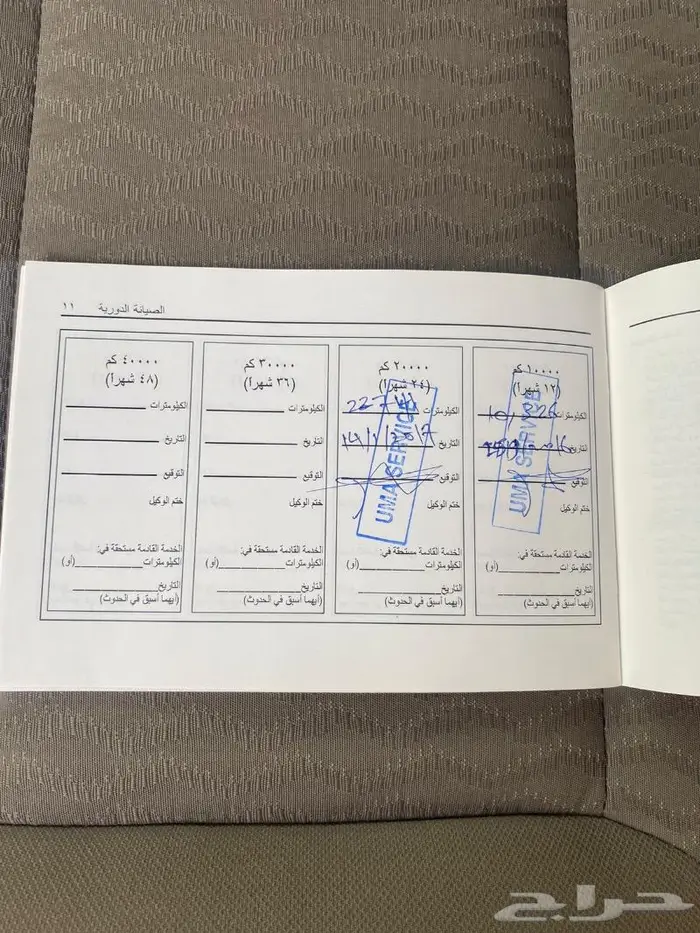 الصيانة الدورية ١١
١٠٠٠٠ كم
(١٢ شهراً)
الكيلومترات
التاريخ
التوقيع
ختم الوكيل
UMA SERVICE
الخدمة القادمة مستحقة في:
الكيلومترات (أو)
التاريخ
(أيهما أسبق في الحدوث)
٢٠٠٠٠ كم
(٢٤ شهراً)
الكيلومترات
التاريخ
التوقيع
ختم الوكيل
UMA SERVICE
الخدمة القادمة مستحقة في:
الكيلومترات (أو)
التاريخ
(أيهما أسبق في الحدوث)
٣٠٠٠٠ كم
(٣٦ شهراً)
الكيلومترات
التاريخ
التوقيع
ختم الوكيل
الخدمة القادمة مستحقة في:
الكيلومترات (أو)
التاريخ
(أيهما أسبق في الحدوث)
٤٠٠٠٠ كم
(٤٨ شهراً)
الكيلومترات
التاريخ
التوقيع
ختم الوكيل
الخدمة القادمة مستحقة في:
الكيلومترات (أو)
التاريخ
(أيهما أسبق في الحدوث)
حراج